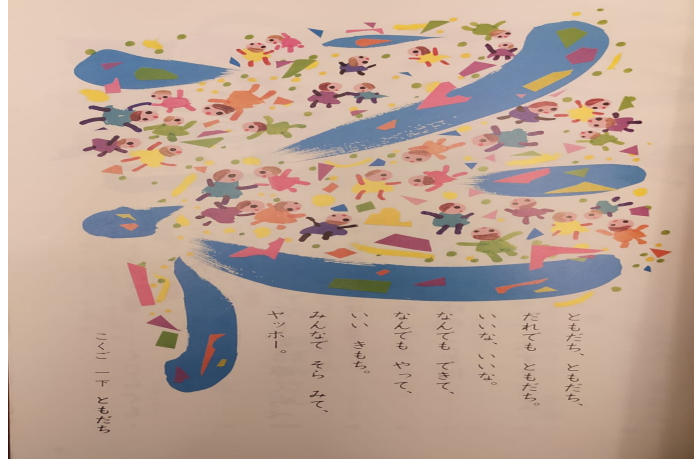 ともだち、ともだち、
だれでも ともだち。
いいな、いいな。
なんでも できて、
なんでも やって、
いい きもち。
みんなで そら みて、
ヤッホー。
こくご 一下 ともだち